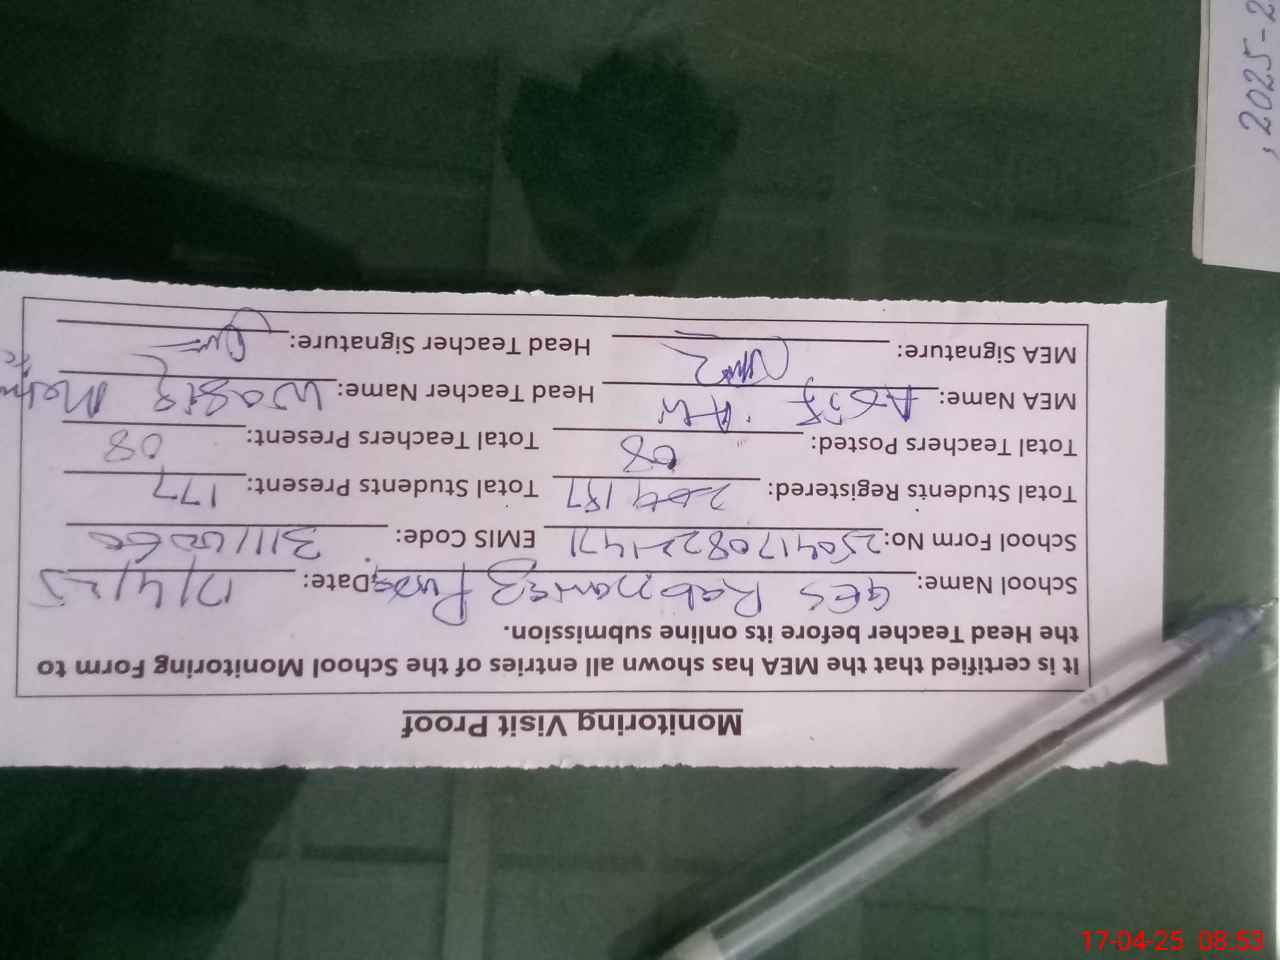 Monitoring Visit Proof
It is certified that the MEA has shown all entries of the School Monitoring Form to
the Head Teacher before its online submission.
School Name: GES Rab Nawaz Date: 17/4/25
School Form No: EMIS Code:
Total Students Registered: 187 Total Students Present: 177
Total Teachers Posted: 08 Total Teachers Present: 08
MEA Name: Asif Ali Head Teacher Name:
MEA Signature: Head Teacher Signature:
, 2025-2
17-04-25 08:53